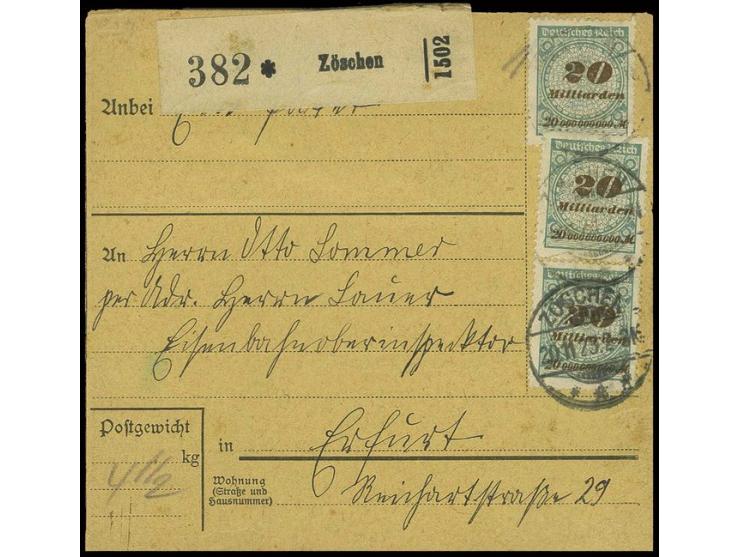 382 * Zöschen 1502
Anbei
Deutsches Reich
20
Milliarden
20 000 000 000 M
Deutsches Reich
20
Milliarden
20 000 000 000 M
Deutsches Reich
20
Milliarden
20 000 000 000 M
ZÖSCHEN
20.11.23
An Herrn Otto Sommer
per Adr. Herrn Sauer
Eisenbahnoberinspektor
Postgewicht
kg
4 1/2
in Erfurt
Wohnung
(Straße und
Hausnummer)
Reichartstraße 29